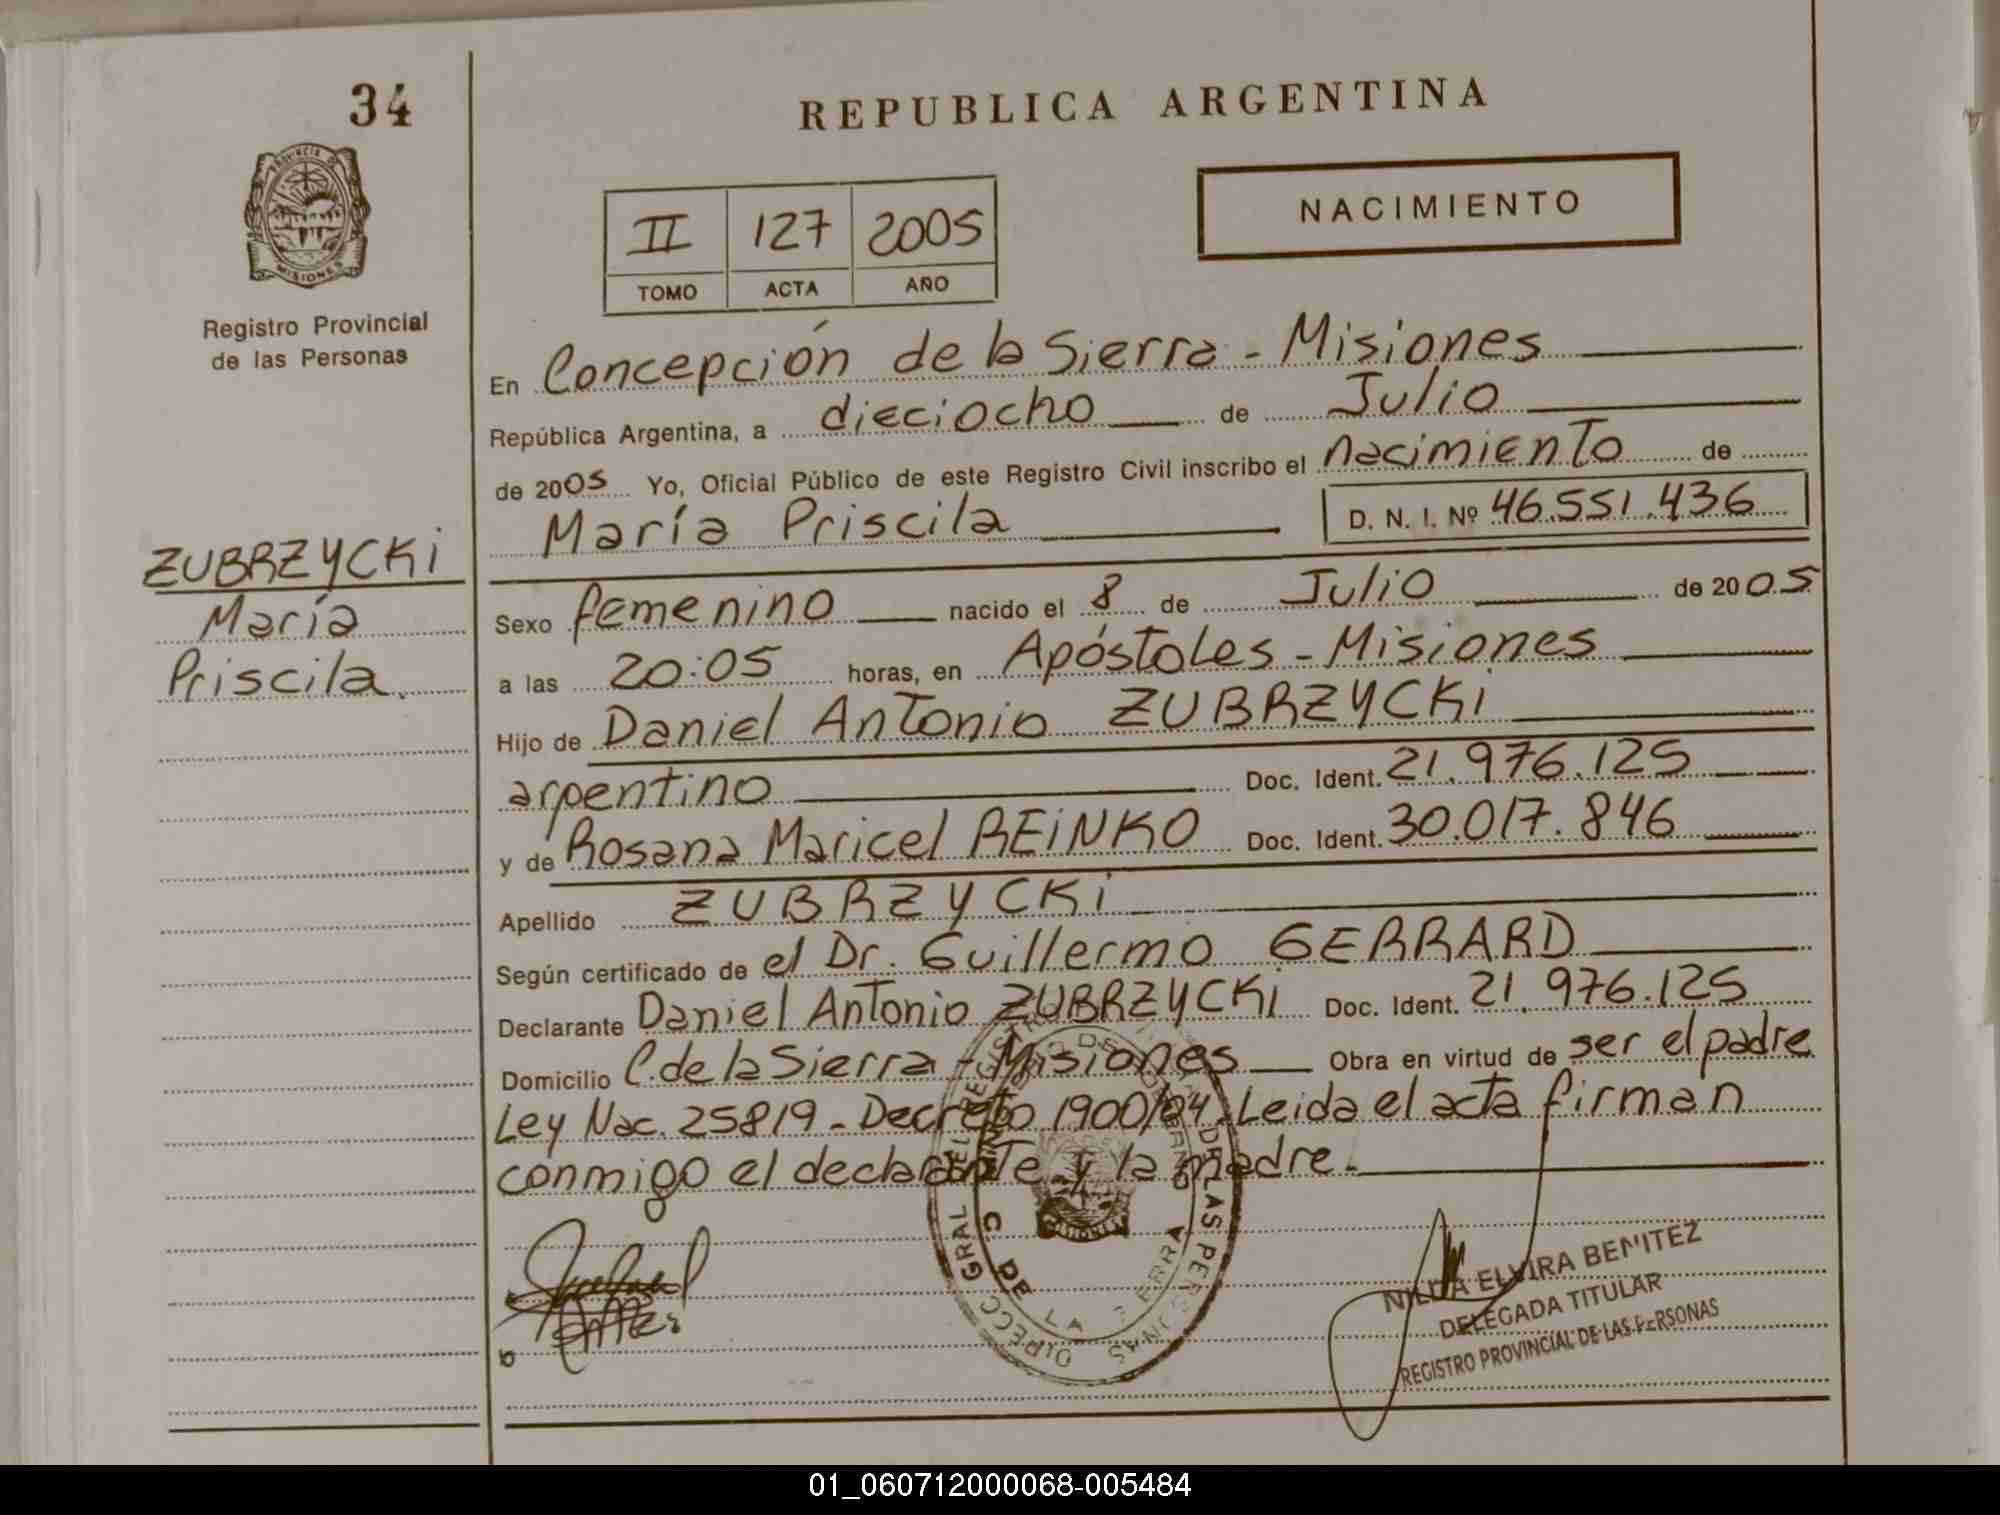 34
PROVINCIA DE
MISIONES
Registro Provincial
de las Personas
ZUBRZYCKi
María
Priscila.
REPUBLICA ARGENTINA
II 127 2005
TOMO ACTA AÑO
NACIMIENTO
En Concepción de la Sierra - Misiones
República Argentina, a dieciocho de Julio
de 2005 Yo, Oficial Público de este Registro Civil inscribo el nacimiento de
María Priscila D. N. I. Nº 46.551.436
Sexo femenino nacido el 8 de Julio de 2005
a las 20:05 horas, en Apóstoles - Misiones
Hijo de Daniel Antonio ZUBRZYCKi
argentino Doc. Ident. 21.976.125
y de Rosana Maricel REiNKO Doc. Ident. 30.017.846
Apellido ZUBRZYCKi
Según certificado de el Dr. Guillermo GERRARD
Declarante Daniel Antonio ZUBRZYCKi Doc. Ident. 21.976.125
Domicilio C. de la Sierra - Misiones Obra en virtud de ser el padre
Ley Nac. 25819 - Decreto 1900/04 Leida el acta firman
conmigo el declarante y la madre.
NILDA ELVIRA BENITEZ
DELEGADA TITULAR
REGISTRO PROVINCIAL DE LAS PERSONAS
01_060712000068-005484